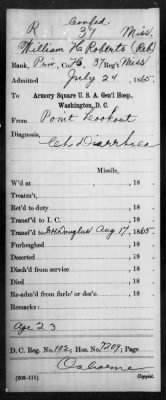 Confed.
R 37 Miss.
William H. Roberts (Reb)
Rank, Priv., Co. H, 37 Reg't Miss
Admitted July 24, 1865.
To Armory Square U. S. A. Gen'l Hosp.,
Washington, D. C.
From Point Lookout
Diagnosis,
Ch. Diarrhoea
Missile,
W'd at , 18
Treatm't,
Ret'd to duty , 18
Transf'd to I. C. , 18
Transf'd to Douglas Aug 17, 1865.
Furloughed , 18
Deserted , 18
Disch'd from service , 18
Died , 18
Re-adm'd from furlo' or des'n , 18
Remarks:
Age 23
D. C. Reg. No. 102; Hos. No. 7209; Page
Osborne
(203-111) Copyist.